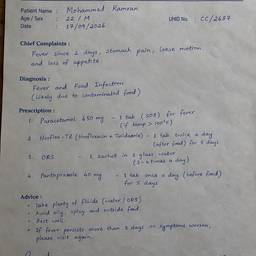 Patient Name : Mohammed Kamran
Age / Sex : 22 / M UHID No. : CC/2687
Date : 17/09/2026
Chief Complaints :
Fever since 2 days, stomach pain, loose motion
and loss of appetite.
Diagnosis :
Fever and Food Infection
(likely due to contaminated food)
Prescription :
1. Paracetamol 650 mg - 1 tab (SOS) for fever
(if temp > 100°F)
2. Norflox-TZ (Norfloxacin + Tinidazole) - 1 tab twice a day
(after food) for 5 days
3. ORS - 1 sachet in 1 glass water
(3-4 times a day)
4. Pantoprazole 40 mg - 1 tab once a day (before food)
for 5 days
Advice :
- Take plenty of fluids (water / ORS)
- Avoid oily, spicy and outside food.
- Rest well.
- If fever persists more than 3 days or symptoms worsen,
please visit again.